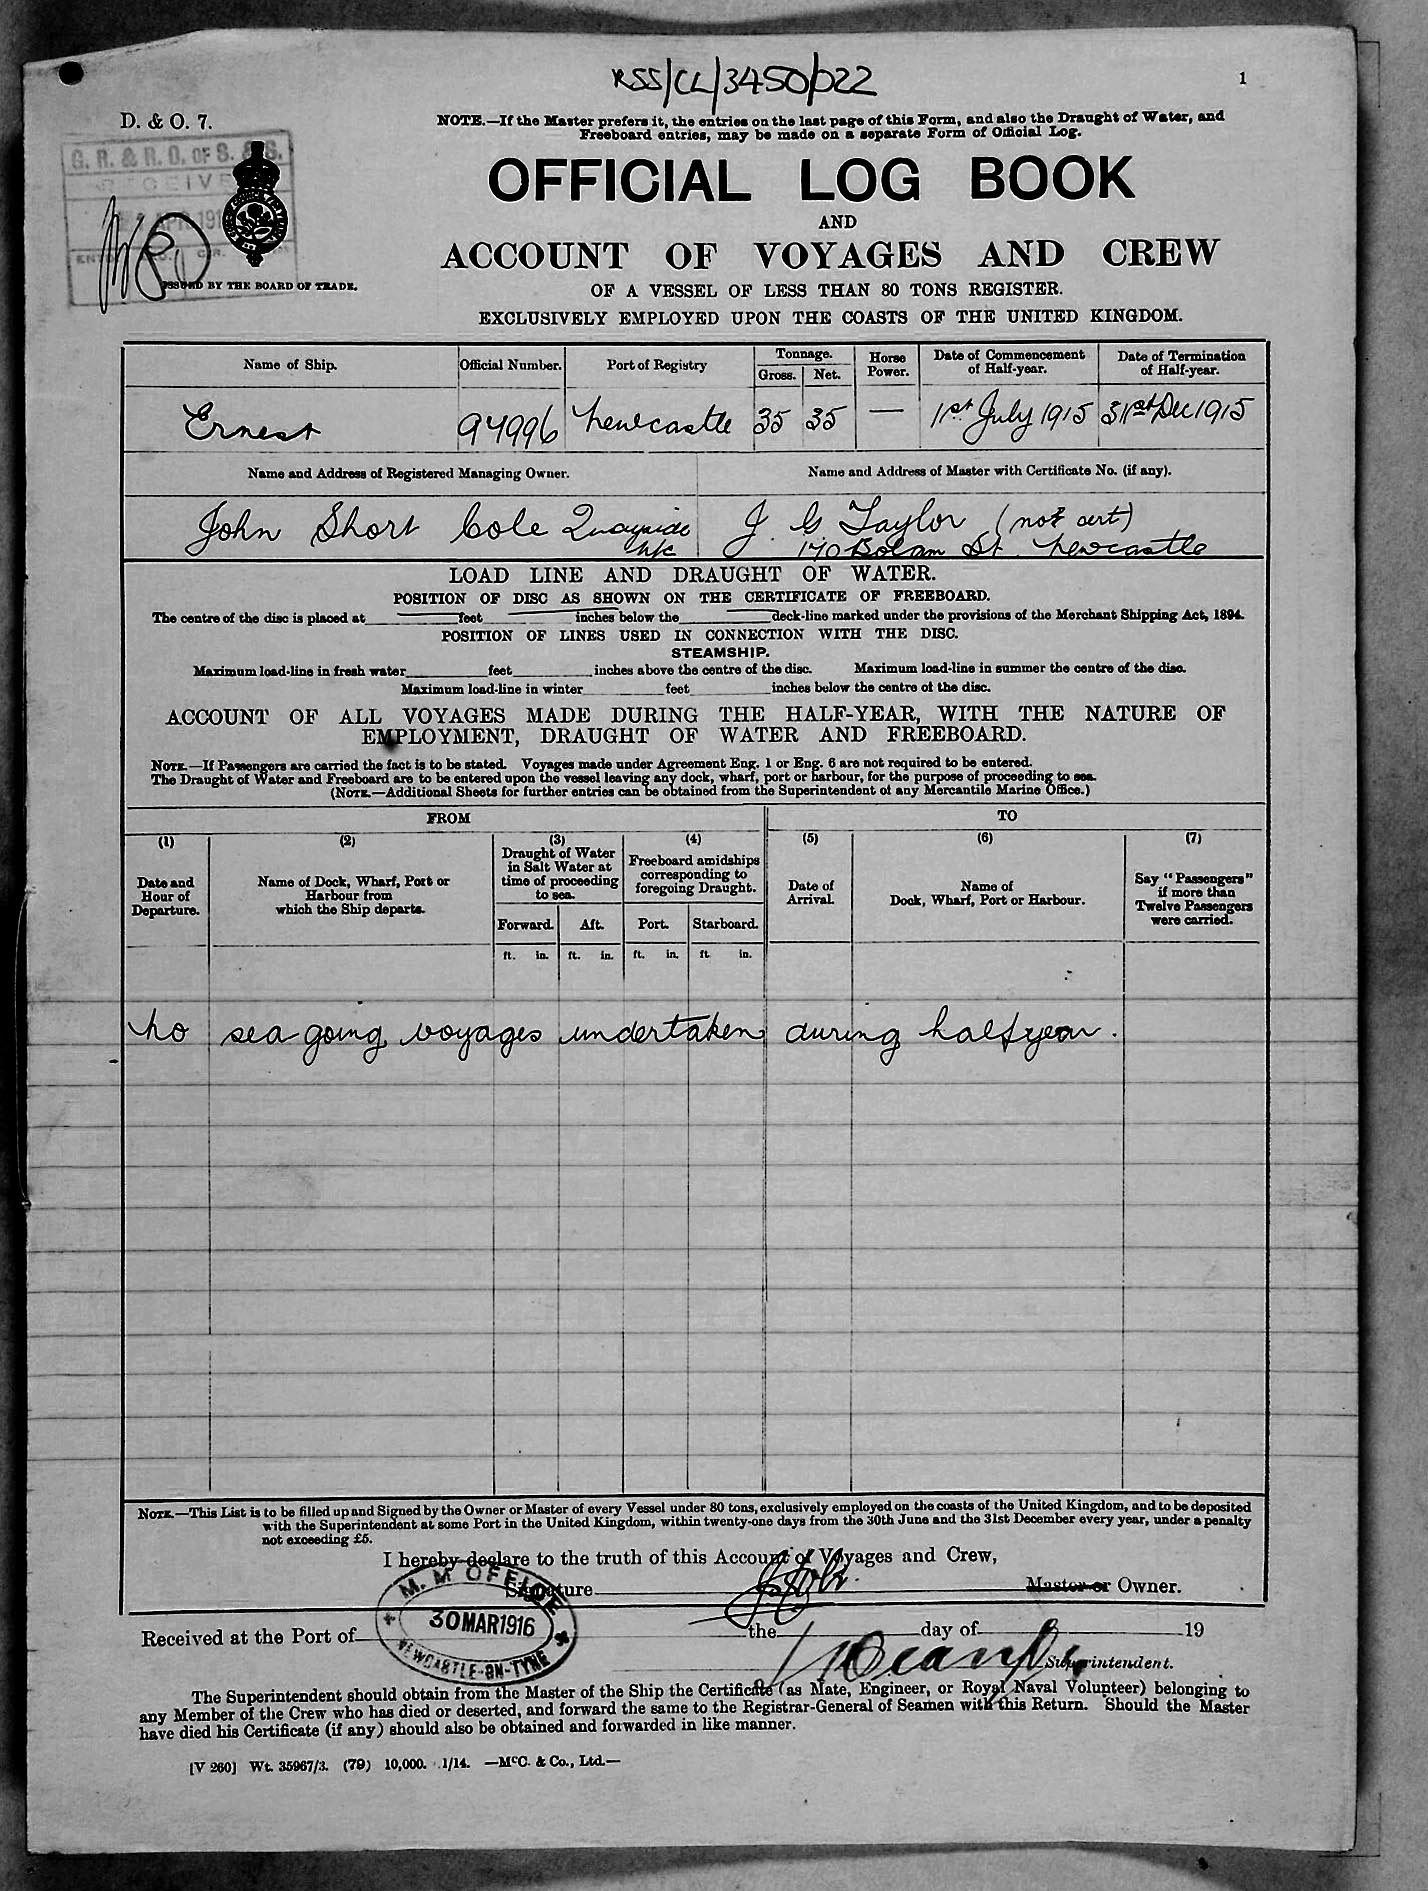 RSS/CL/3450/022
1
D. & O. 7.
NOTE.—If the Master prefers it, the entries on the last page of this Form, and also the Draught of Water, and
Freeboard entries, may be made on a separate Form of Official Log.
G. R. & R. O. OF S. & S.
RECEIVE
APR 191
ISSUED BY THE BOARD OF TRADE.
OFFICIAL LOG BOOK
AND
ACCOUNT OF VOYAGES AND CREW
OF A VESSEL OF LESS THAN 80 TONS REGISTER.
EXCLUSIVELY EMPLOYED UPON THE COASTS OF THE UNITED KINGDOM.
Name of Ship. Official Number. Port of Registry Tonnage. Gross. Net. Horse Power. Date of Commencement of Half-year. Date of Termination of Half-year.
Ernest 94996 Newcastle 35 35 — 1st July 1915 31st Dec 1915
Name and Address of Registered Managing Owner. Name and Address of Master with Certificate No. (if any).
John Short Cole Quayside N/c J. G Taylor (not cert)
170 Bolam St. Newcastle
LOAD LINE AND DRAUGHT OF WATER.
POSITION OF DISC AS SHOWN ON THE CERTIFICATE OF FREEBOARD.
The centre of the disc is placed at feet inches below the deck-line marked under the provisions of the Merchant Shipping Act, 1894.
POSITION OF LINES USED IN CONNECTION WITH THE DISC.
STEAMSHIP.
Maximum load-line in fresh water feet inches above the centre of the disc. Maximum load-line in summer the centre of the disc.
Maximum load-line in winter feet inches below the centre of the disc.
ACCOUNT OF ALL VOYAGES MADE DURING THE HALF-YEAR, WITH THE NATURE OF
EMPLOYMENT, DRAUGHT OF WATER AND FREEBOARD.
NOTE.—If Passengers are carried the fact is to be stated. Voyages made under Agreement Eng. 1 or Eng. 6 are not required to be entered.
The Draught of Water and Freeboard are to be entered upon the vessel leaving any dock, wharf, port or harbour, for the purpose of proceeding to sea.
(NOTE.—Additional Sheets for further entries can be obtained from the Superintendent of any Mercantile Marine Office.)
FROM TO
(1) (2) (3) (4) (5) (6) (7)
Date and Hour of Departure.
Name of Dock, Wharf, Port or Harbour from which the Ship departs.
Draught of Water in Salt Water at time of proceeding to sea.
Freeboard amidships corresponding to foregoing Draught.
Date of Arrival.
Name of Dock, Wharf, Port or Harbour.
Say "Passengers" if more than Twelve Passengers were carried.
Forward. Aft. Port. Starboard.
ft. in. ft. in. ft. in. ft. in.
No sea going voyages undertaken during half year.
NOTE.—This List is to be filled up and Signed by the Owner or Master of every Vessel under 80 tons, exclusively employed on the coasts of the United Kingdom, and to be deposited
with the Superintendent at some Port in the United Kingdom, within twenty-one days from the 30th June and the 31st December every year, under a penalty
not exceeding £5.
I hereby declare to the truth of this Account of Voyages and Crew,
Signature Master or Owner.
M. M OFFICE
30 MAR 1916
NEWCASTLE-ON-TYNE
Received at the Port of the day of 19
Superintendent.
The Superintendent should obtain from the Master of the Ship the Certificate (as Mate, Engineer, or Royal Naval Volunteer) belonging to
any Member of the Crew who has died or deserted, and forward the same to the Registrar-General of Seamen with this Return. Should the Master
have died his Certificate (if any) should also be obtained and forwarded in like manner.
[V 260] Wt. 35967/3. (79) 10,000. 1/14. —McC. & Co., Ltd.—